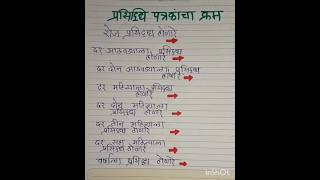 प्रसिद्धि पत्रकांचा क्रम
रोज प्रसिद्ध होणारे
दर आठवड्याला प्रसिद्ध
होणारे
दर दोन आठवड्याला प्रसिद्ध
होणारे
दर महिन्याला प्रसिद्ध
होणारे
दर दोन महिन्याला
प्रसिद्ध होणारे
दर तीन महिन्याला
प्रसिद्ध होणारे
दर सहा महिन्याला
प्रसिद्ध होणारे
वर्षाला प्रसिद्ध होणारे
InShOt